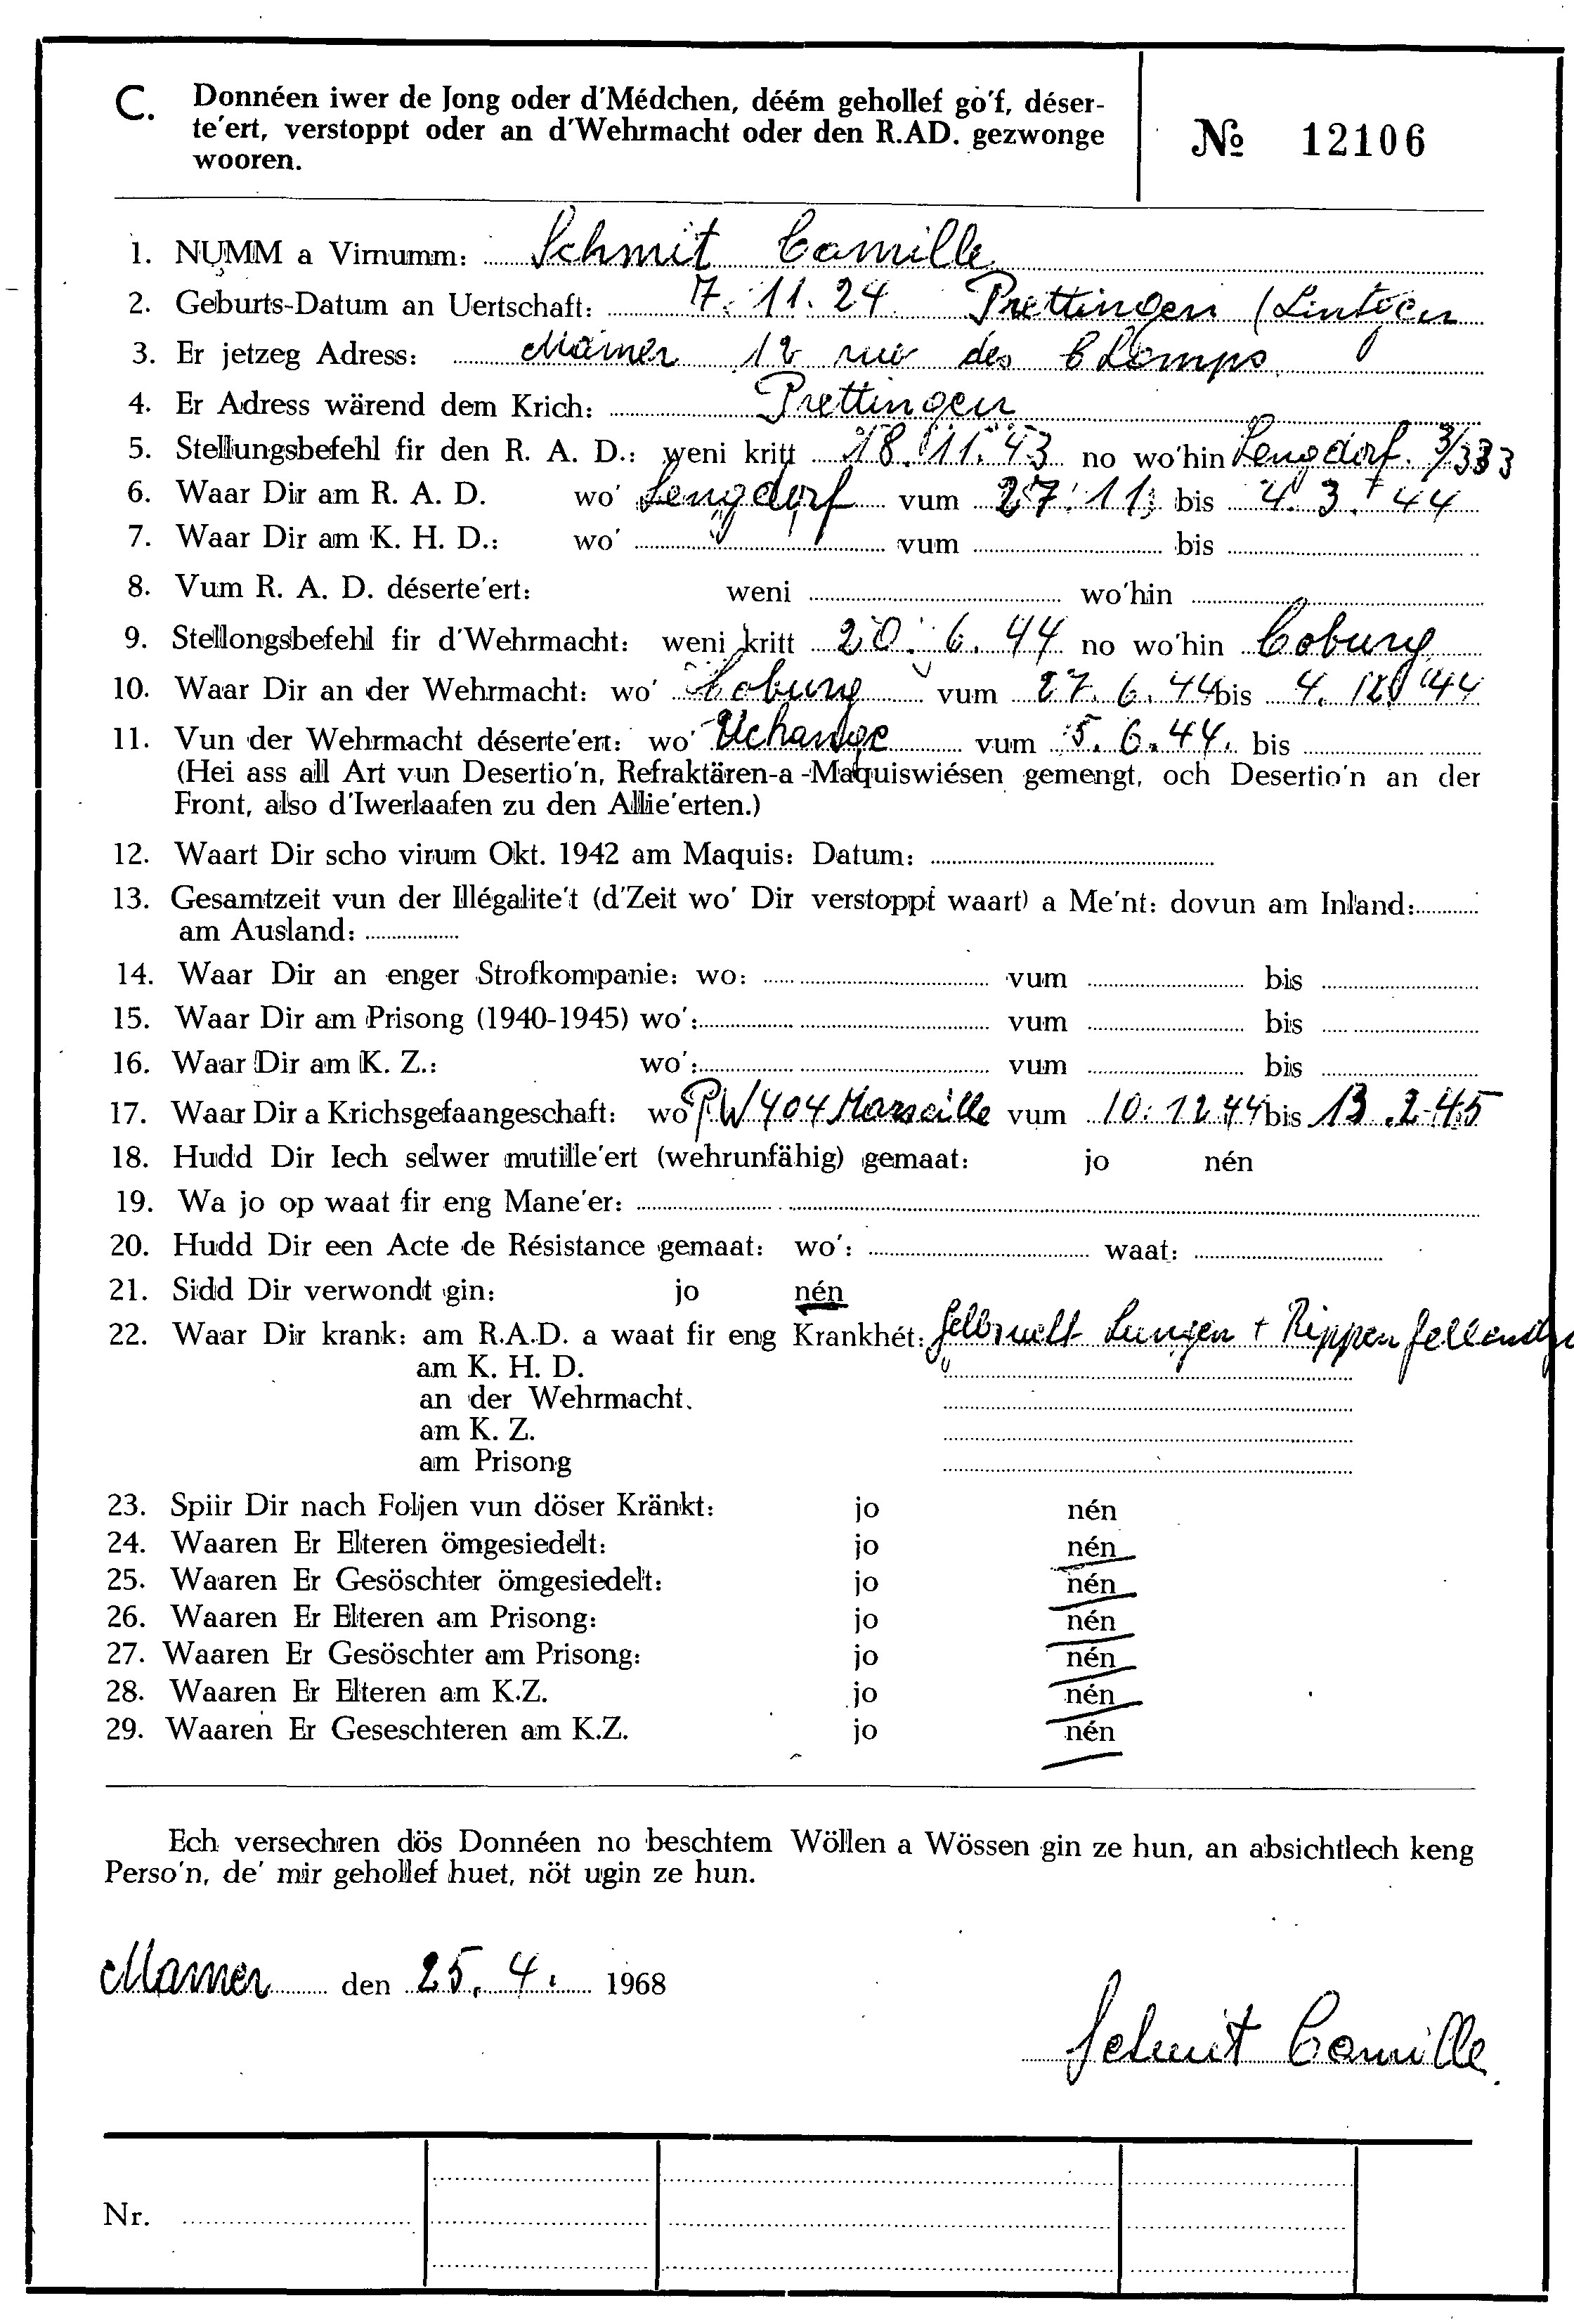 C. Donnéen iwer de Jong oder d'Médchen, déém gehollef go'f, déser-
te'ert, verstoppt oder an d'Wehrmacht oder den R.AD. gezwonge
wooren.
№ 12106
1. NUMM a Virnumm: Schmit Camille
2. Geburts-Datum an Uertschaft: 7. 11. 24 Prettingen (Lintgen
3. Er jetzeg Adress: Mamer 12 rue des Champs
4. Er Adress wärend dem Krich: Prettingen
5. Stellungsbefehl fir den R. A. D.: weni kritt 18. 11. 43 no wo'hin Lengdorf. 3/333
6. Waar Dir am R. A. D. wo' Lengdorf vum 27. 11. bis 4. 3. 44
7. Waar Dir am K. H. D.: wo' vum bis
8. Vum R. A. D. déserte'ert: weni wo'hin
9. Stellongsbefehl fir d'Wehrmacht: weni kritt 20. 6. 44 no wo'hin Coburg
10. Waar Dir an der Wehrmacht: wo' Coburg vum 27. 6. 44 bis 4. 44
11. Vun der Wehrmacht déserte'ert: wo' Uchange vum 5. 6. 44. bis
(Hei ass all Art vun Desertio'n, Refraktären-a-Maquiswiésen gemengt, och Desertio'n an der
Front, also d'Iwerlaafen zu den Allie'erten.)
12. Waart Dir scho virum Okt. 1942 am Maquis: Datum:
13. Gesamtzeit vun der Illégalite't (d'Zeit wo' Dir verstoppt waart) a Me'nt: dovun am Inland:
am Ausland:
14. Waar Dir an enger Strofkompanie: wo: vum bis
15. Waar Dir am Prisong (1940-1945) wo': vum bis
16. Waar Dir am K. Z.: wo': vum bis
17. Waar Dir a Krichsgefaangeschaft: wo P.W 404 Marseille vum 10. 12 44 bis 13. 2. 45
18. Hudd Dir Iech selwer mutille'ert (wehrunfähig) gemaat: jo nén
19. Wa jo op waat fir eng Mane'er:
20. Hudd Dir een Acte de Résistance gemaat: wo': waat:
21. Sidd Dir verwondt gin: jo nén
22. Waar Dir krank: am R.A.D. a waat fir eng Krankhét: Lungen + Rippenfellendz
am K. H. D.
an der Wehrmacht.
am K. Z.
am Prisong
23. Spiir Dir nach Foljen vun döser Kränkt: jo nén
24. Waaren Er Elteren ömgesiedelt: jo nén
25. Waaren Er Gesöschter ömgesiedelt: jo nén
26. Waaren Er Elteren am Prisong: jo nén
27. Waaren Er Gesöschter am Prisong: jo nén
28. Waaren Er Elteren am K.Z. jo nén
29. Waaren Er Geseschteren am K.Z. jo nén
Ech versechren dös Donnéen no beschtem Wöllen a Wössen gin ze hun, an absichtlech keng
Perso'n, de' mir gehollef huet, nöt ugin ze hun.
Mamer den 25. 4. 1968
Schmit Camille
Nr.